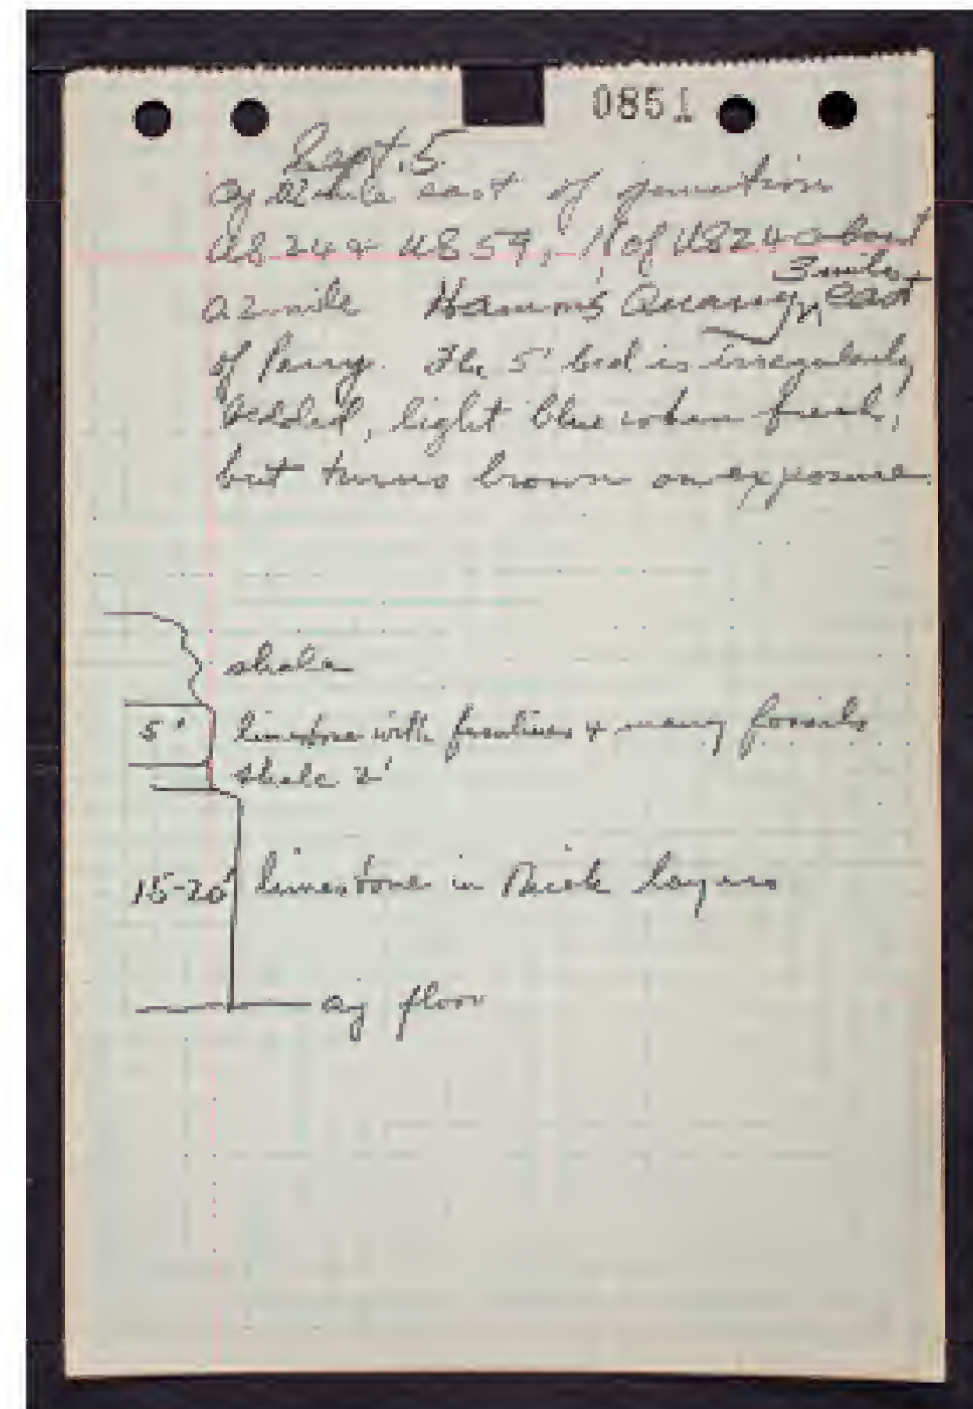 0851
Sept. 5
mile east of junction
US 24 & US 59, N of US 24
3 miles
mile Hamm's Quarry, east
of Perry. The 5' bed is irregularly
bedded, light blue when fresh,
but turns brown on exposure.
shale
5' limestone with & many fossils
shale 2'
15-20' limestone in thick layers
floor